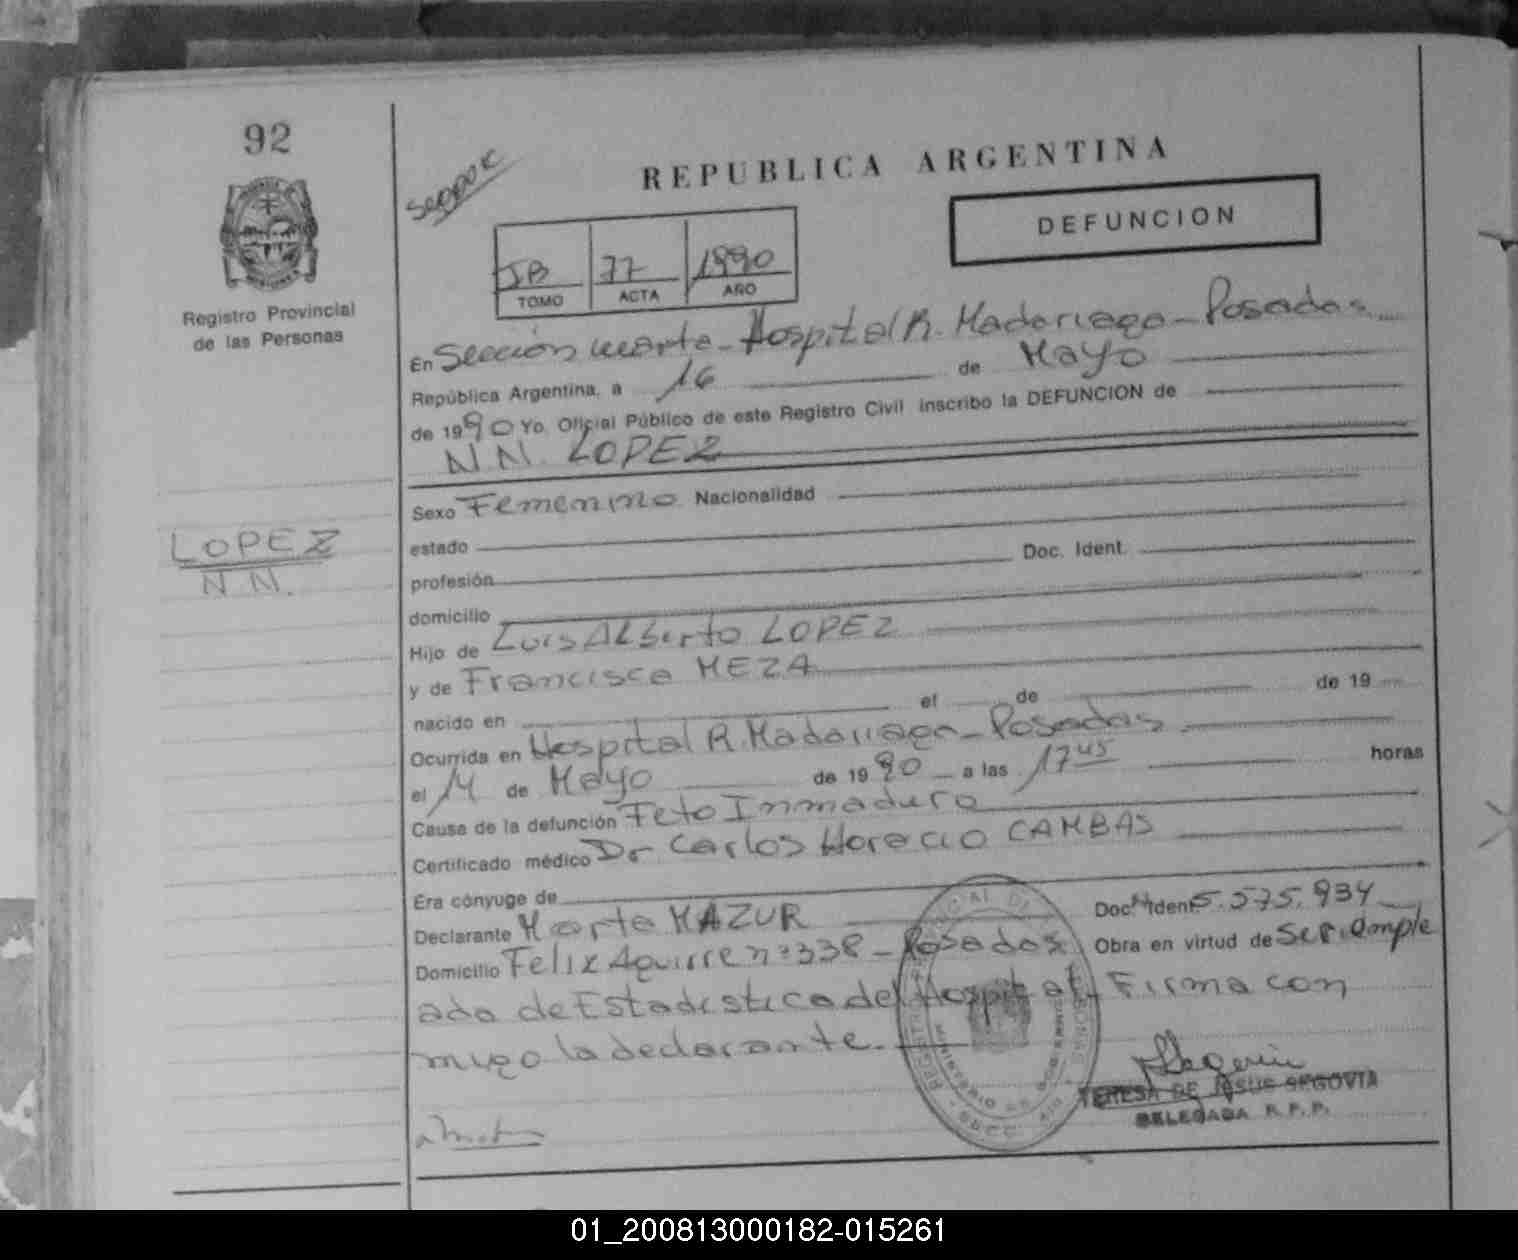 92
Registro Provincial
de las Personas
LOPEZ
N N.
REPUBLICA ARGENTINA
DEFUNCION
77 1990
TOMO ACTA AÑO
En Sección cuarta - Hospital R. Madariaga - Posadas
República Argentina, a 16 de Mayo
de 1990 Yo, Oficial Público de este Registro Civil inscribo la DEFUNCION de
N N. LOPEZ
Sexo Femenino Nacionalidad
estado
profesión Doc. Ident.
domicilio
Hijo de Luis Alberto LOPEZ
y de Francisca MEZA
nacido en el de de 19
Ocurrida en Hospital R. Madariaga - Posadas
el 14 de Mayo de 1990 a las 17 45 horas
Causa de la defunción Feto Inmaduro
Certificado médico Dr Carlos Horacio CAMBAS
Era cónyuge de
Declarante Marta MAZUR Doc. Ident. 5.575.934
Domicilio Felix Aguirre nº 338 - Posadas Obra en virtud de ser emple
ada de Estadistica del Hospital Firma con
migo la declarante.
TERESA DE JESUS SEGOVIA
DELEGADA R.P.P.
01_200813000182-015261